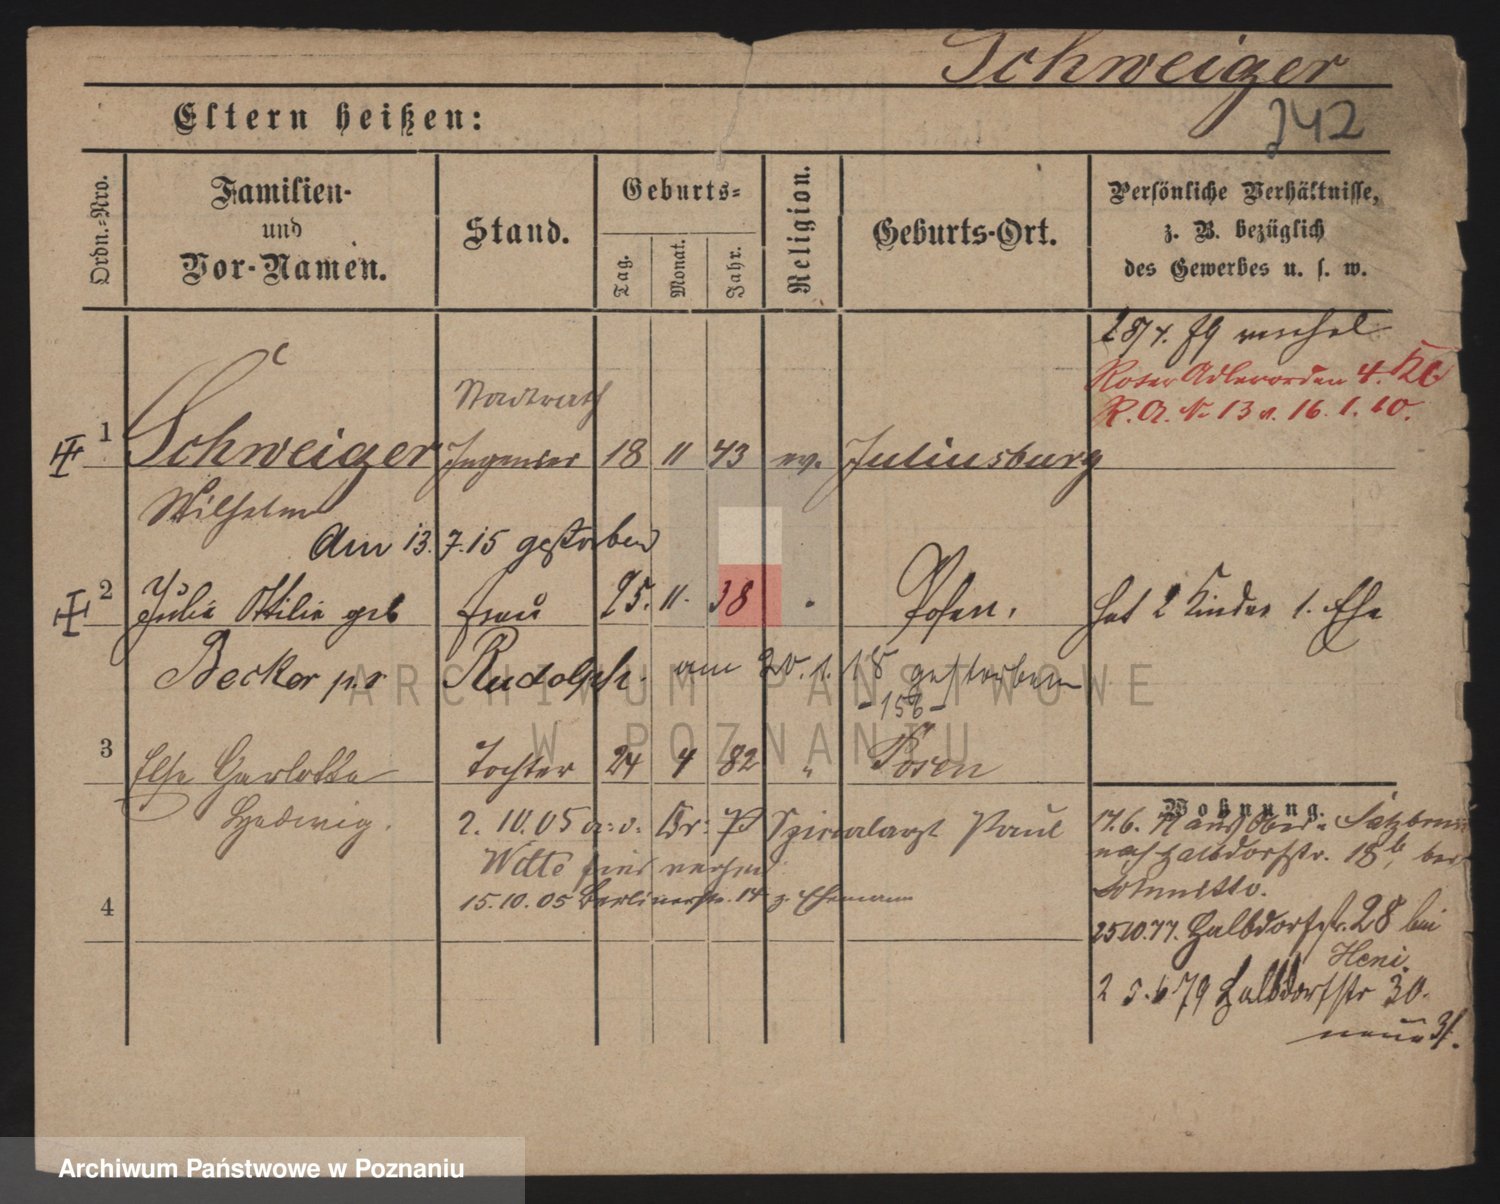 Schweiger
242
Eltern heißen:
Ordn.-Nro.
Familien-
und
Vor-Namen.
Stand.
Geburts-
Tag.
Monat.
Jahr.
Religion.
Geburts-Ort.
Persönliche Verhältnisse,
z. B. bezüglich
des Gewerbes u. s. w.
Roter Adlerorden 4. Kl.
13 v. 16. 1. 10.
Stadtrath
1 Schweiger Ingenier 18 11 43 ev. Juliusburg
Wilhelm
Am 13. 7. 15 gestorben
2 Julie Ottilie geb Frau 25. 11. 38 Posen. hat 2 Kinder 1. Ehe
Becker Rudolph. am 20. 1. 18 gestorben
- 156 -
3 Else Charlotte Tochter 24 4 82 " Posen
Hedwig.
2. 10. 05 Dr: Spezialarzt Paul
Witte
15. 10. 05 Berlinerstr. 14 z. Ehemann
4
Wohnung.
17. 6.
nach Halbdorfstr. 18b, bei
25 10. 77. Halbdorfstr. 28 bei
Heni.
2 5. 6 79 Halbdorfstr 30.
neue 31.
ARCHIWUM PAŃSTWOWE
W POZNANIU
Archiwum Państwowe w Poznaniu